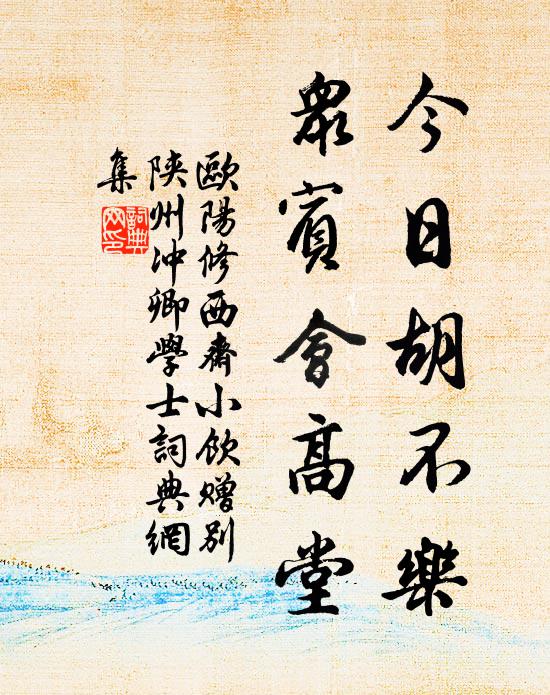 今日胡不樂
衆賓會高堂
歐陽修西齋小飲贈別
陝州冲卿學士詞典網
集
詞典
网印